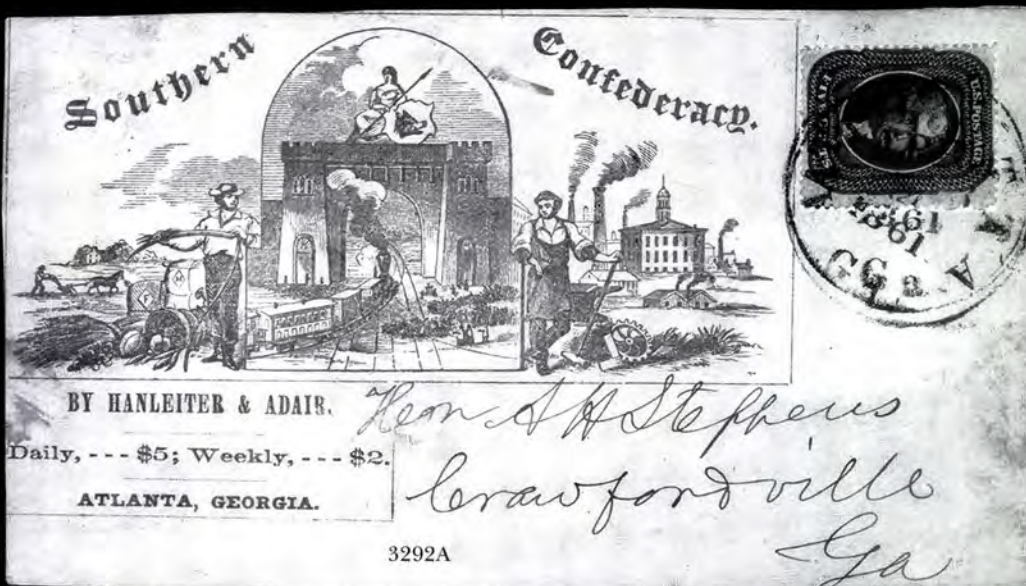 Southern Confederacy.
BY HANLEITER & ADAIR.
Daily, - - - $5; Weekly, - - - $2.
ATLANTA, GEORGIA.
Hon A H Stephens
Crawfordville
Ga
3292A
U.S. POSTAGE
1861
Ga